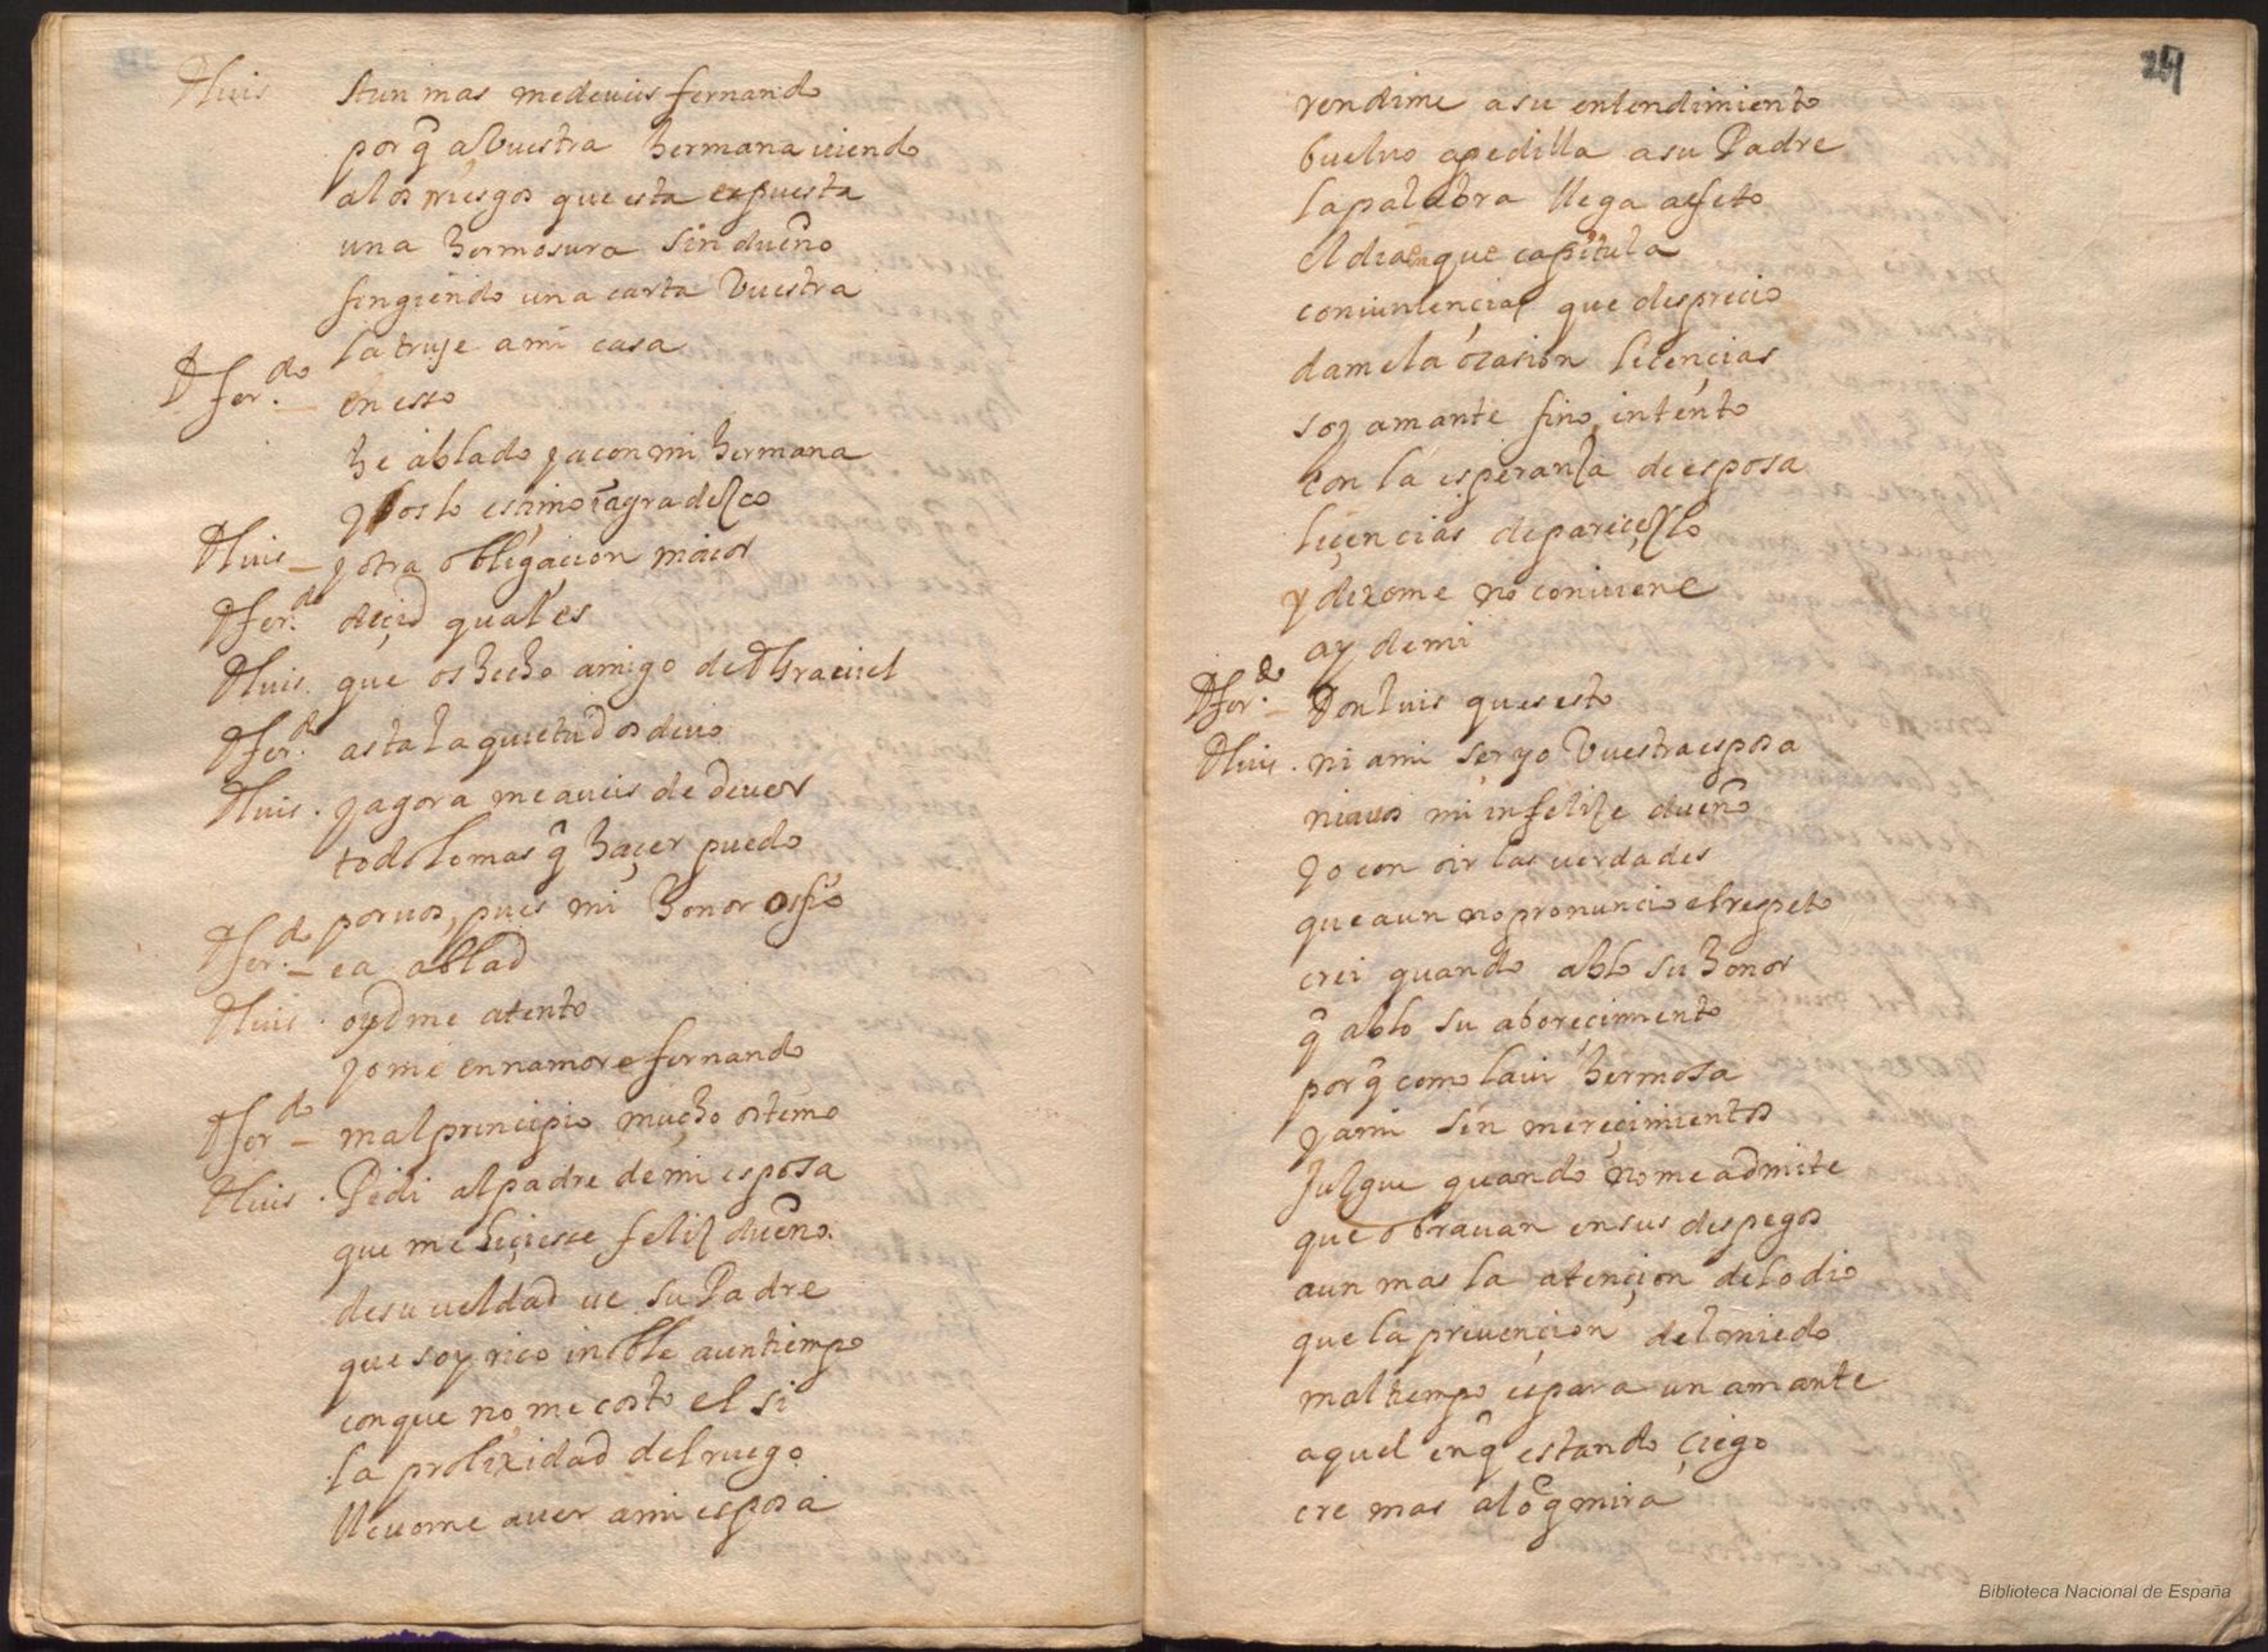 Dluis Aun mas medeueis fernando
porq̃ a Vuestra hermana uiendo
alos riesgos que esta expuesta
una hermosura sin dueño
fingiendo una carta Vuestra
la truje a mi casa
Dfer.do en esso
he ablado ya con mi hermana
y os lo estimo i agradesco
Dluis – y otra obligacion maior
Dfer.do deçid qual es
Dluis. que os hecho amigo de D Grauiel
Dfer.do asta la quietud os deuo
Dluis. y agora me aueis de deuer
todo lo mas q̃ haçer puedo
por uos, pues mi honor os fio
Dfer.do – ea ablad
Dluis. oydme atento
yo me ennamore fernando
Dfer.do – mal principio mucho os temo
Dluis. Pedi al padre de mi esposa
que me hiçiesse feliz dueño.
de su ueldad ue su Padre
que soy rico i noble a un tiempo
con que no me costo el si
la prolixidad del ruego
lleuome a uer a mi esposa
251
rendime a su entendimiento
buelvo a pedilla a su Padre
la palabra llega a efeto
el dia en que capitula
coniuulencias que desprecio
dame la ocasion liçençias
soy amante fino, intento
con la esperanza de esposa
liçencias de
y dixome no conuiene
ay de mi
Dfer.do – Don luis que es esto
Dluis. ni a mi ser yo Vuestra esposa
ni a uos mi infelize dueño
yo con oir las uerdades
que aun no pronuncio el respeto
crei quando ablo su honor
q̃ ablo su aborecimiento
porq̃ como la ui hermosa
y a mi sin mereçimientos
Julgue quando no me admite
que obrauan en sus despegos
aun mas la atençion del odio
que la preuençion del miedo
mal tiempo es para un amante
aquel en q̃ estando çiego
cre mas a lo q̃ mira
Biblioteca Nacional de España